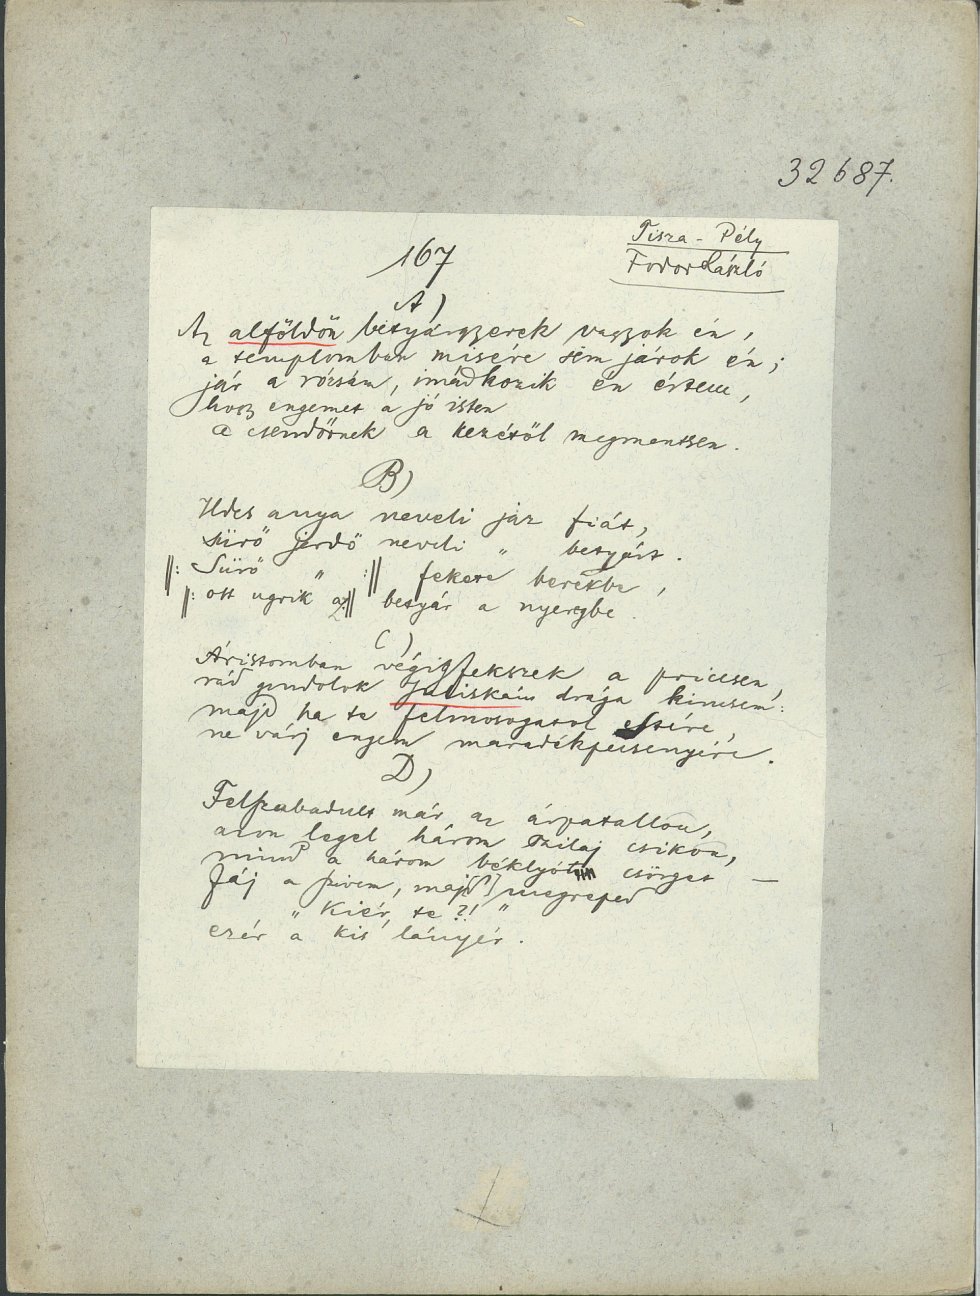 32687.
Tisza-Pély
Fodor László
167
A)
Az alföldön betyárgyerek vagyok én,
a templomban misére sem járok én;
jár a rózsám, imádkozik én értem,
hogy engemet a jó isten
a csendőrnek a kezétől megmentsen.
B)
Édes anya neveli jaz fiát,
sűrű jerdő neveli " betyárt.
||: Sűrű " :|| fekete berekbe,
||: ott ugrik a :|| betyár a nyeregbe.
C)
Áristomban végigfekszek a priccsen,
rád gondolok Juliskám drága kincsem:
majd ha te felmosogatol estére,
ne várj engem maradékpecsenyére.
D)
Felszabadult már az árpatalló,
azon legel három szilaj csikó,
mind a három béklyót csörget —
fáj a szivem, majd megreped
" Kiér, te ?! "
ezér a kis lányér.